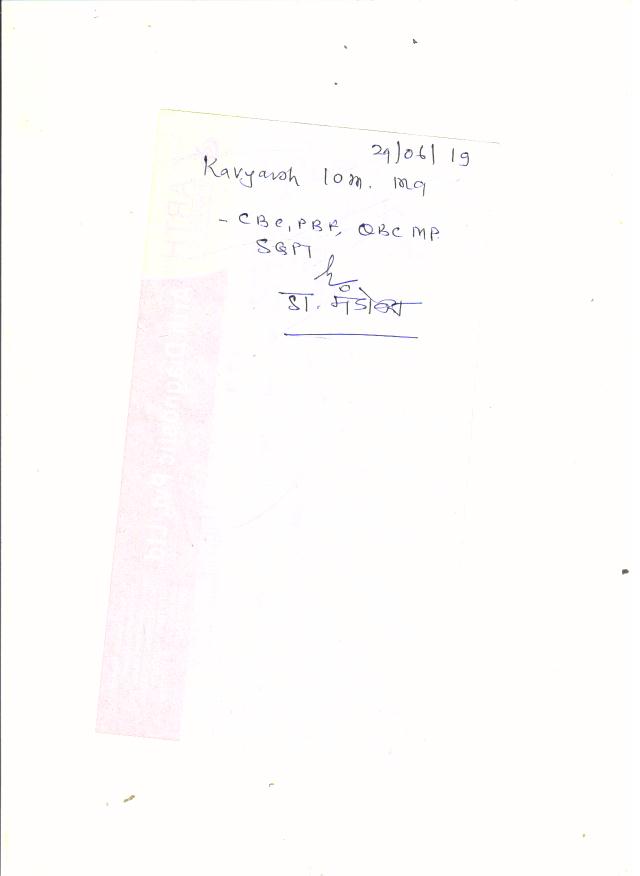 29/06/19
Kavyansh 10m. mg
- CBC, PBF, QBC MP.
SGPT
डा.